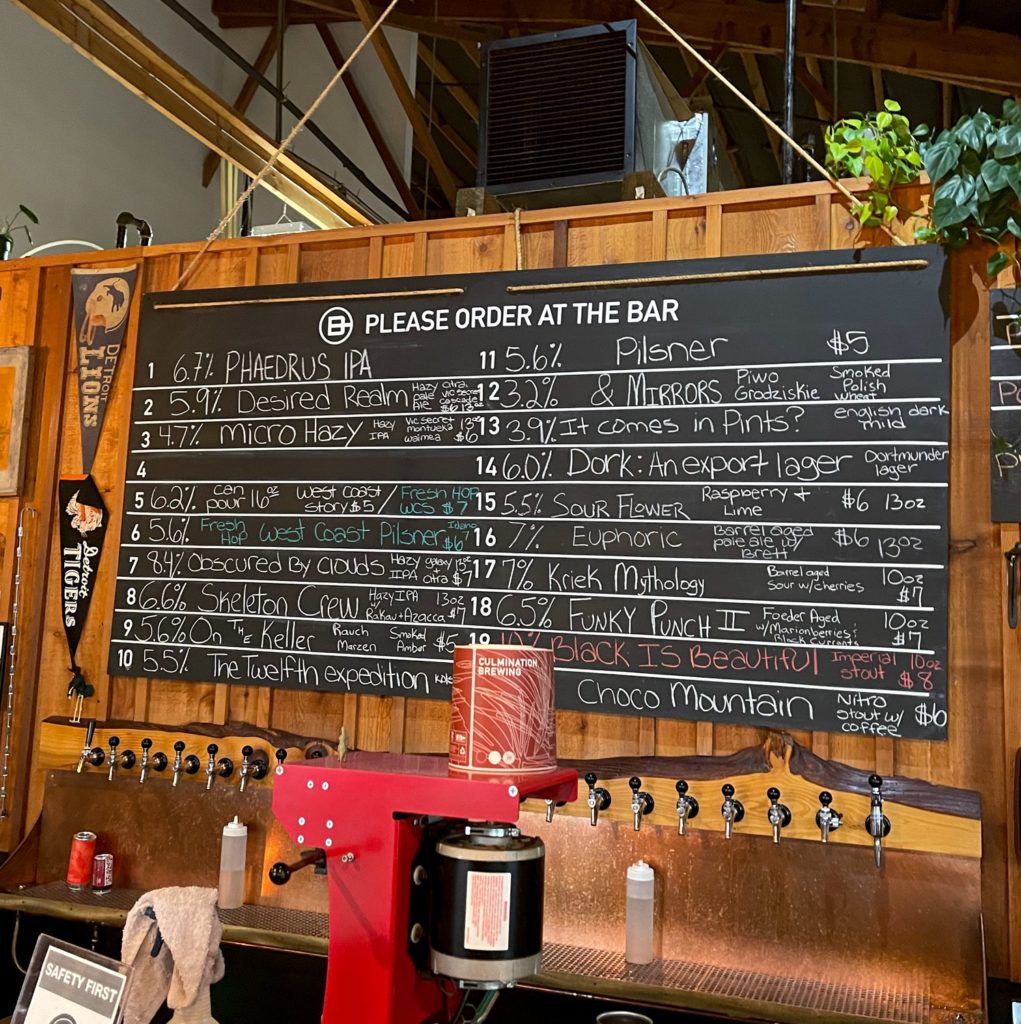 PLEASE ORDER AT THE BAR
1 6.7% PHAEDRUS IPA
2 5.9% Desired Realm Hazy pale Ale citra vic secret cascade $6 13oz
3 4.7% micro Hazy Hazy IPA Vic secret montueka waimea 13oz $6
4
5 6.2% can pour 16oz west coast story $5 / Fresh Hop WCS $7
6 5.6% Fresh Hop West Coast Pilsner Idaho $6
7 8.4% Obscured By Clouds Hazy IIPA galaxy + citra 13oz $7
8 6.6% Skeleton Crew Hazy IPA w/ Rakau + Azacca 13oz $7
9 5.6% On THE Keller Rauch Marzen Smoked Amber $5
10 5.5% The Twelfth expedition
11 5.6% Pilsner $5
12 3.2% & MIRRORS Piwo Grodziskie Smoked Polish wheat
13 3.9% It comes in Pints? english dark mild
14 6.0% Dork: An export lager Dortmunder lager
15 5.5% SOUR FLOWER Raspberry + Lime $6 13oz
16 7% Euphoric Barrel aged pale ale w/ Brett $6 13oz
17 7% Kriek Mythology Barrel aged sour w/cherries 10oz $7
18 6.5% FUNKY PUNCH II Foeder Aged w/Marionberries: Black Currants 10oz $7
19 10% BLACK IS BEAUTIFUL Imperial stout 10oz $8
Choco Mountain Nitro stout w/ coffee $6
DETROIT LIONS
Detroit TIGERS
CULMINATION
BREWING
SAFETY FIRST